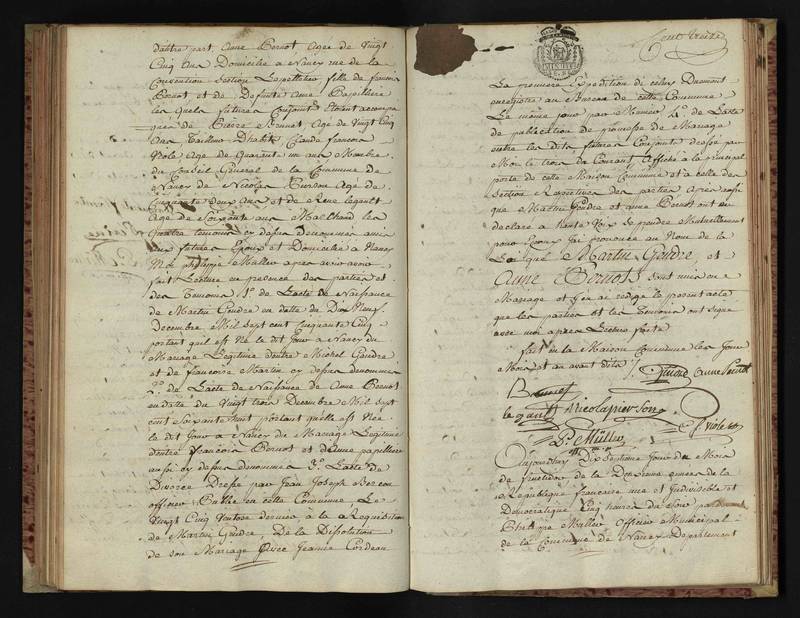 d'autre part, Anne Bernot, Agée de Vingt
Cinq ans Domiciliée a Nancy rue de la
Convention Section Lepelletier fille de francois
Bernot et de Defunte Anne Papilliere
les quels futures Conjoints Etoient accompa
gnés de Brunot Agé de Vingt Cinq
Ans Tailleur D'habits Claude francois
Viole Agé de Quarante un ans Membre
du Conseil General de la Commune de
Nancy de Nicolas Pierson Agé de
Cinquante Deux Ans et de Rene legault
Agé de Soixante ans Marchand les
Quatre temoins cy dessus Denommés amis
aux futures Epoux et Domiciliés a Nancy
Moi philippe Muller apres avoir
fait Lecture en presence des parties et
des Temoins 1o de Lacte de Naissance
de Martin Goudre en datte du Dix Neuf
Decembre Mil sept cent Cinquante Cinq
portant quil est Né le dit Jour a Nancy du
Mariage Legitime dentre Michel Goudre
et de francoise Martin cy dessus denommés
2o de Lacte de Naissance de Anne Bernot
en datte du Vingt trois Decembre Mil sept
cent Soixante huit portant quelle est Née
le dit Jour a Nancy de Mariage Legitime
dentre francois Bernot et Danne papilliere
aussi cy dessus denommés 3o Lacte de
Divorce Dressé par Jean Joseph
officier Public en cette Commune Le
Vingt Cinq Ventose dernier, à la Requisition
de Martin Goudre, De la Dissolution
de son Mariage avec Jeanne Cordeau
Cent treize
La premiere Expedition de celui
enregistré au Bureau de cette Commune
Le même jour par 4o de Lacte
de publication de promesse de Mariage
entre les dits futures Conjoints dressé par
Moi le trois du Courant Affiché a la principal
porte de cette Maison Commune et a celle des
Section Respectives des parties Apres aussi
que Martin Goudre et anne Bernot ont eu
declaré a haute Voix Se prendre Mutuellement
pour Epoux Jai prononcé au Nom de la
Loi que Martin Goudre, et
Anne Bernot Sont unis en
Mariage et J'en ai redigé le present acte
que les parties et les Temoins ont signé
avec moi apres Lecture faite
fait en la Maison Commune les Jour
Mois et an avant dits
Goudre anne Bernot
Brunot
le gault Nicolas pierson
Violet
Ph. Müller
Aujourdhuy Dix Septieme Jour du Mois
de fructidor de la Deuxieme année de la
République francaise une et Indivisible et
Democratique Cinq heures du Soir par devant
Philippe Muller Officier Municipal
de la Commune de Nancy Departement